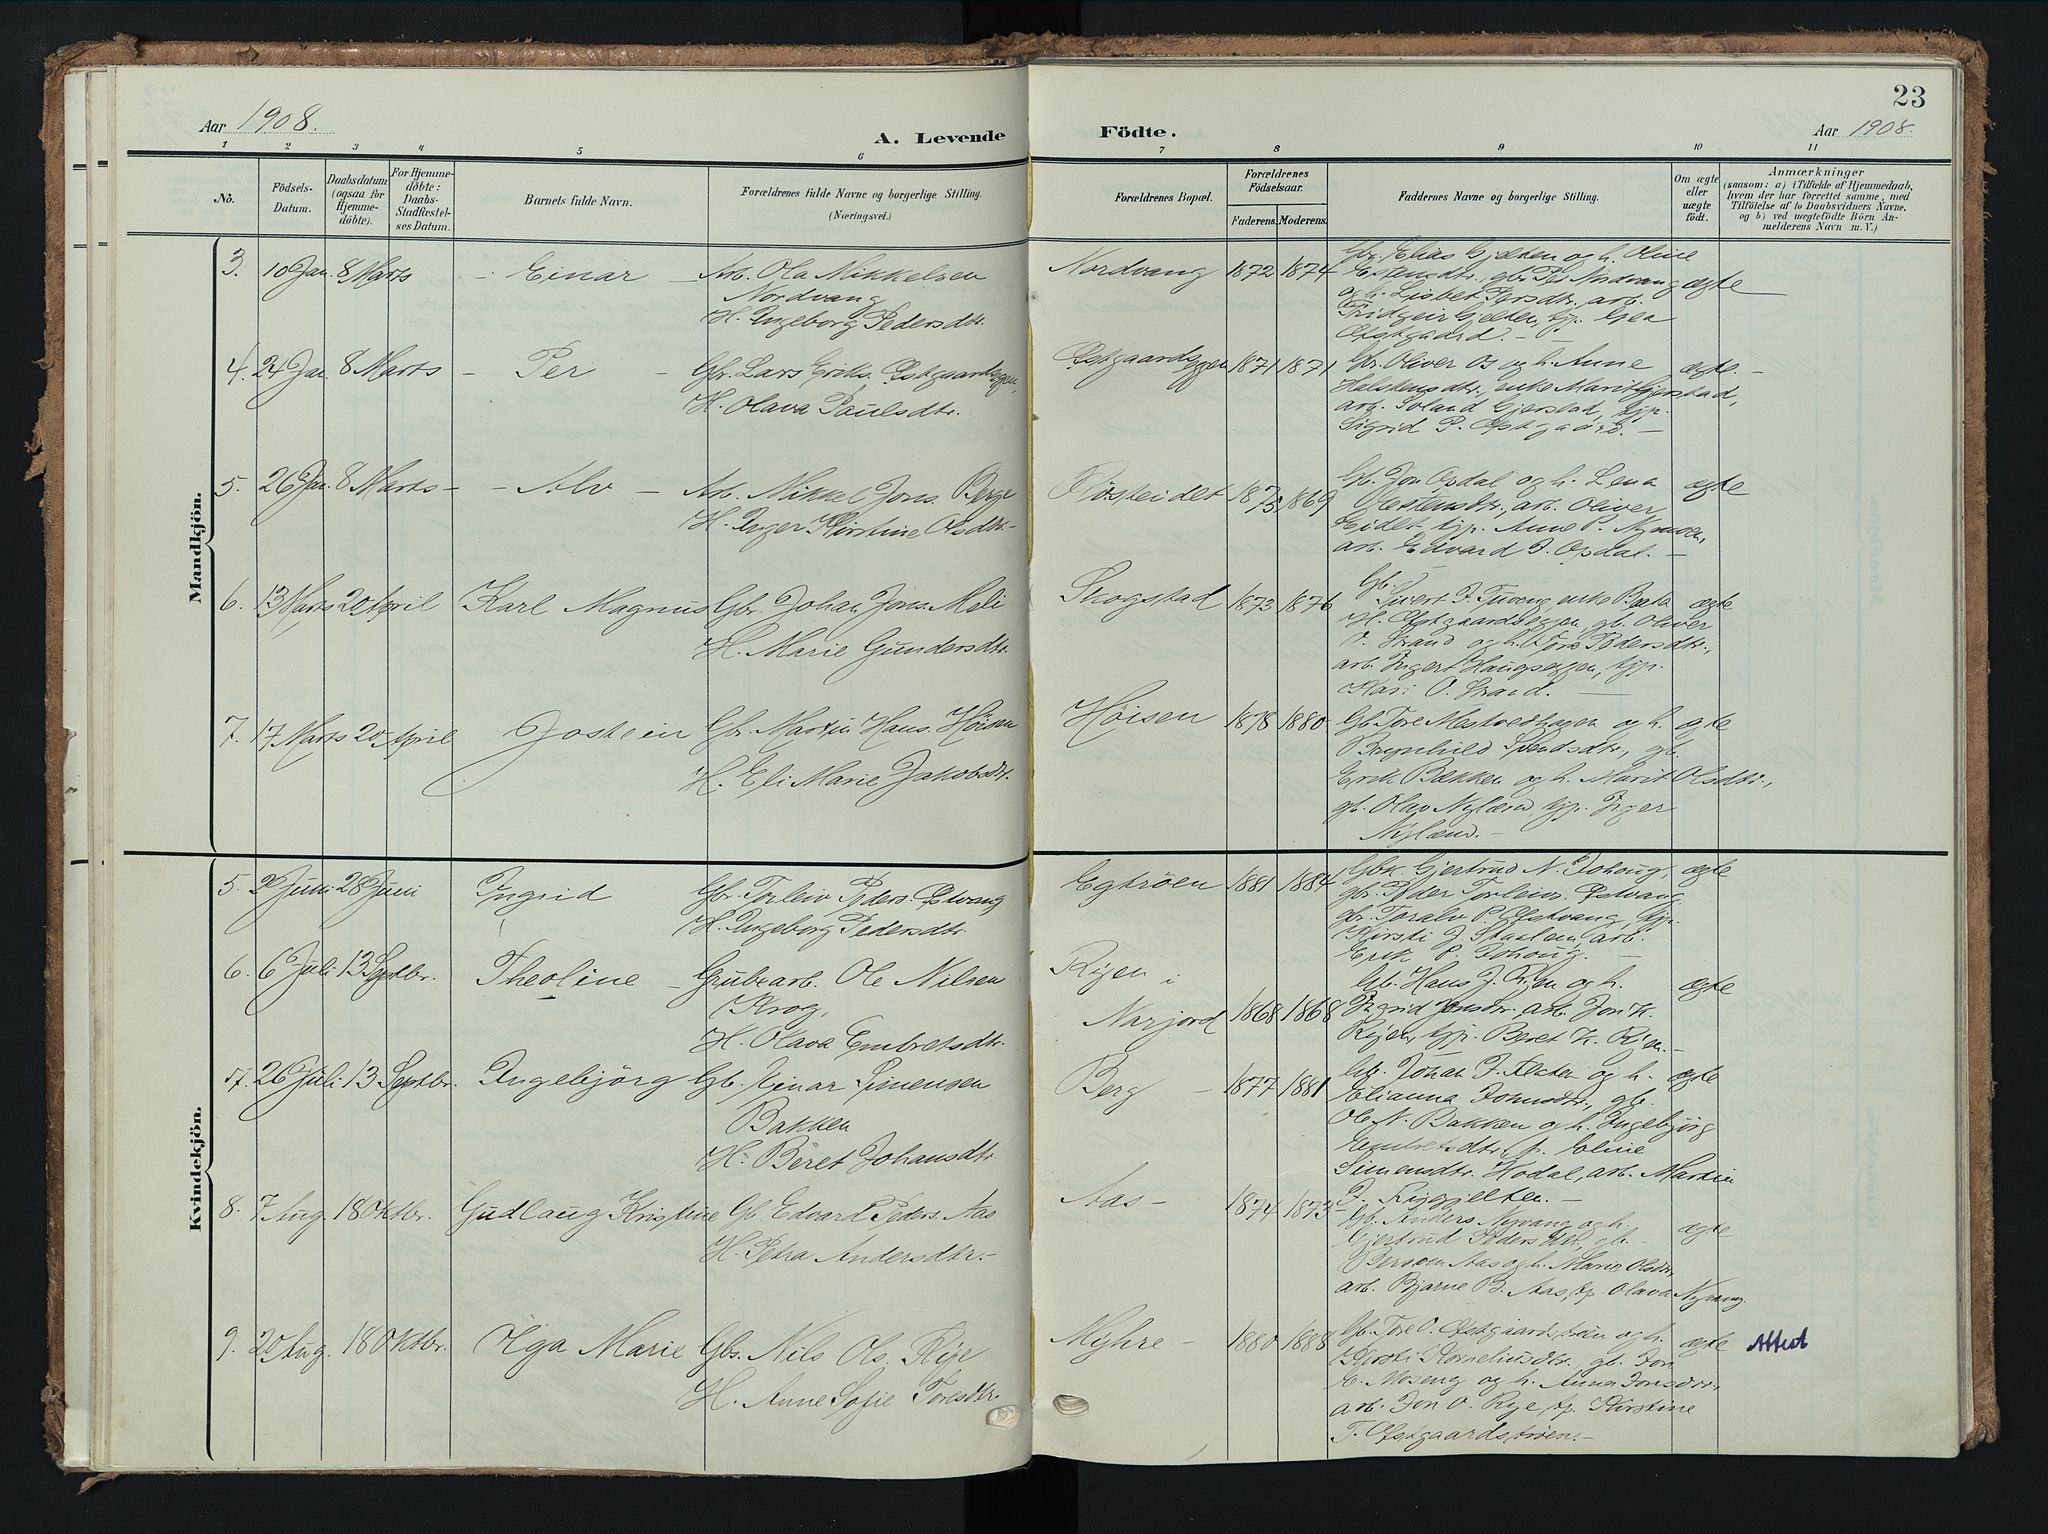 23
Aar 1908.
A. Levende
Födte.
Aar 1908.
1 2 3 4 5 6 7 8 9 10 11
No.
Födsels-
Datum.
Daabsdatum
(ogsaa for
Hjemme-
döbte).
For Hjemme-
döbte:
Daabs-
Stadfæstel-
ses Datum.
Barnets fulde Navn.
Forældrenes fulde Navne og borgerlige Stilling.
(Næringsvei.)
Forældrenes Bopæl.
Forældrenes
Födselsaar.
Faderens.
Moderens.
Faddernes Navne og borgerlige Stilling.
Om ægte
eller
uægte
födt.
Anmærkninger
(saasom: a) i Tilfælde af Hjemmedaab,
hvem der har forrettet samme, med
Tilföielse af to Daabsvidners Navne,
og b) ved uægtefödte Börn An-
melderens Navn m. V.)
Mandkjön.
3. 10 Jan. 8 Marts - Einar - Arb. Ola Mikkelsen
Nordvang
H. Ingeborg Pedersdtr.
Nordvang 1872 1874
Gbr. Elias Gjelten og h. Oline
Estensdtr., gb. Per Nordvang ægte
og h. Lisbet Persdtr., arb.
Fridgeir Gjelten, tjp.
Østgaard. -
4. 24 Jan. 8 Marts - Per - Gbr. Lars Eriks. Østgaardseggen,
H. Olava Paulsdtr.
Østgaardseggen 1871 1871
Gb. Oliver Os og h. Anne ægte. -
Halstensdtr., enke Marit Gjerstad,
arb. Gjerstad, tjp.
Sigrid P. Østgaard. -
5. 26 Jan. 8 Marts - - Alv - Arb. Mikkel Jons. Berge
H. Inger Kirstine Olsdtr. -
Røsteidet 1873 1869
Gb. Jon Opdal og h. Lena ægte
Estensdtr., arb. Oliver
Eidet, tjp. Anne P. Nymoen,
arb. Edvard J. Opdal. -
6. 13 Marts 20 April Karl Magnus Gbr. Johan Jons. Meli
H. Marie Gundersdtr.
Skogstad 1873 1876
Gb.
Sivert J. Tuveng, enke Berte ægte
H. Østgaardseggen, gb. Oliver
O. Strand og h. Tore Pedersdtr.,
arb. Ingert Haugseggen, tjp.
Kari O. Strand. -
7. 17 Marts 20 April Jostein Gbr. Martin Hans. Høisen
H. Eli Marie Jakobsdtr.
Høisen 1878 1880
Gb. Tore Mestvedthagen og h. ægte
Brynhild Svendsdtr., gb.
Erik Bækken og h. Marit Olsdtr.,
gb. Olav Nylænd, tjp. Inger
Nylænd. -
Kvindekjön.
5. Juni 28 Juni Ingrid Gbr. Torleiv Peders. Østvang
H. Ingeborg Pedersdtr.
Egtrøen 1881 1884
Gbk. Gjertrud N. Tohoug, ægte
gb. Peder Torleivs. Østvang
gb. Toralv P. Østvang, tjp.
Kirsti J. Staalen, arb.
Erik P. Tohoug. -
6. 6 Juli 13 Septbr. Theoline - Grubearb. Ole Nilsen
Krog,
H. Olava Embretsdtr.
Ryen i
Narjord 1868 1868
Gb. Hans J. Ryen og h. ægte
Ingrid Jensdtr. arb. Jon K.
Ryen, tjp. Beret K. Ryen. -
7. 26 Juli 13 Septbr. Ingebjörg Gb. Einar Simensen
Bakken
H. Beret Johansdtr.
Berg - 1877 1881
Gb. Johan J. og h. ægte
Elianna Johnsdtr., gb.
Ole N. Bakken og h. Ingebjörg
Embretsdtr., tjp. Eline
Simensdtr. Hodal, arb. Martin
J.
8. 7 Aug. 18 Oktbr. Gudlaug Kristine Gb. Edvard Peders. Aas
H. Petra Andersdtr. -
Aas - 1874 1873
Gb. Anders Nyvang og h. ægte
Gjertrud Pedersdtr., gb. -
Bersven Aas og h. Marie Olsdtr.,
arb. Bjarne B. Aas, tjp. Olava Nyvang.
9. 20 Aug. 18 Oktbr. Olga Marie Gbr. Nils Ols. Rye
H. Anne Sofie Toresdtr.
Myhre - 1880 1888
Gb. Tore O. Østgaardstrøen og h. ægte Attest
Kirsti Korneliusdtr. gb. Jon
E. Moseng og h. Anna Jonsdtr.,
arb. Jon O. Rye, tjp. Kirstine
T. Østgaardstrøen. -